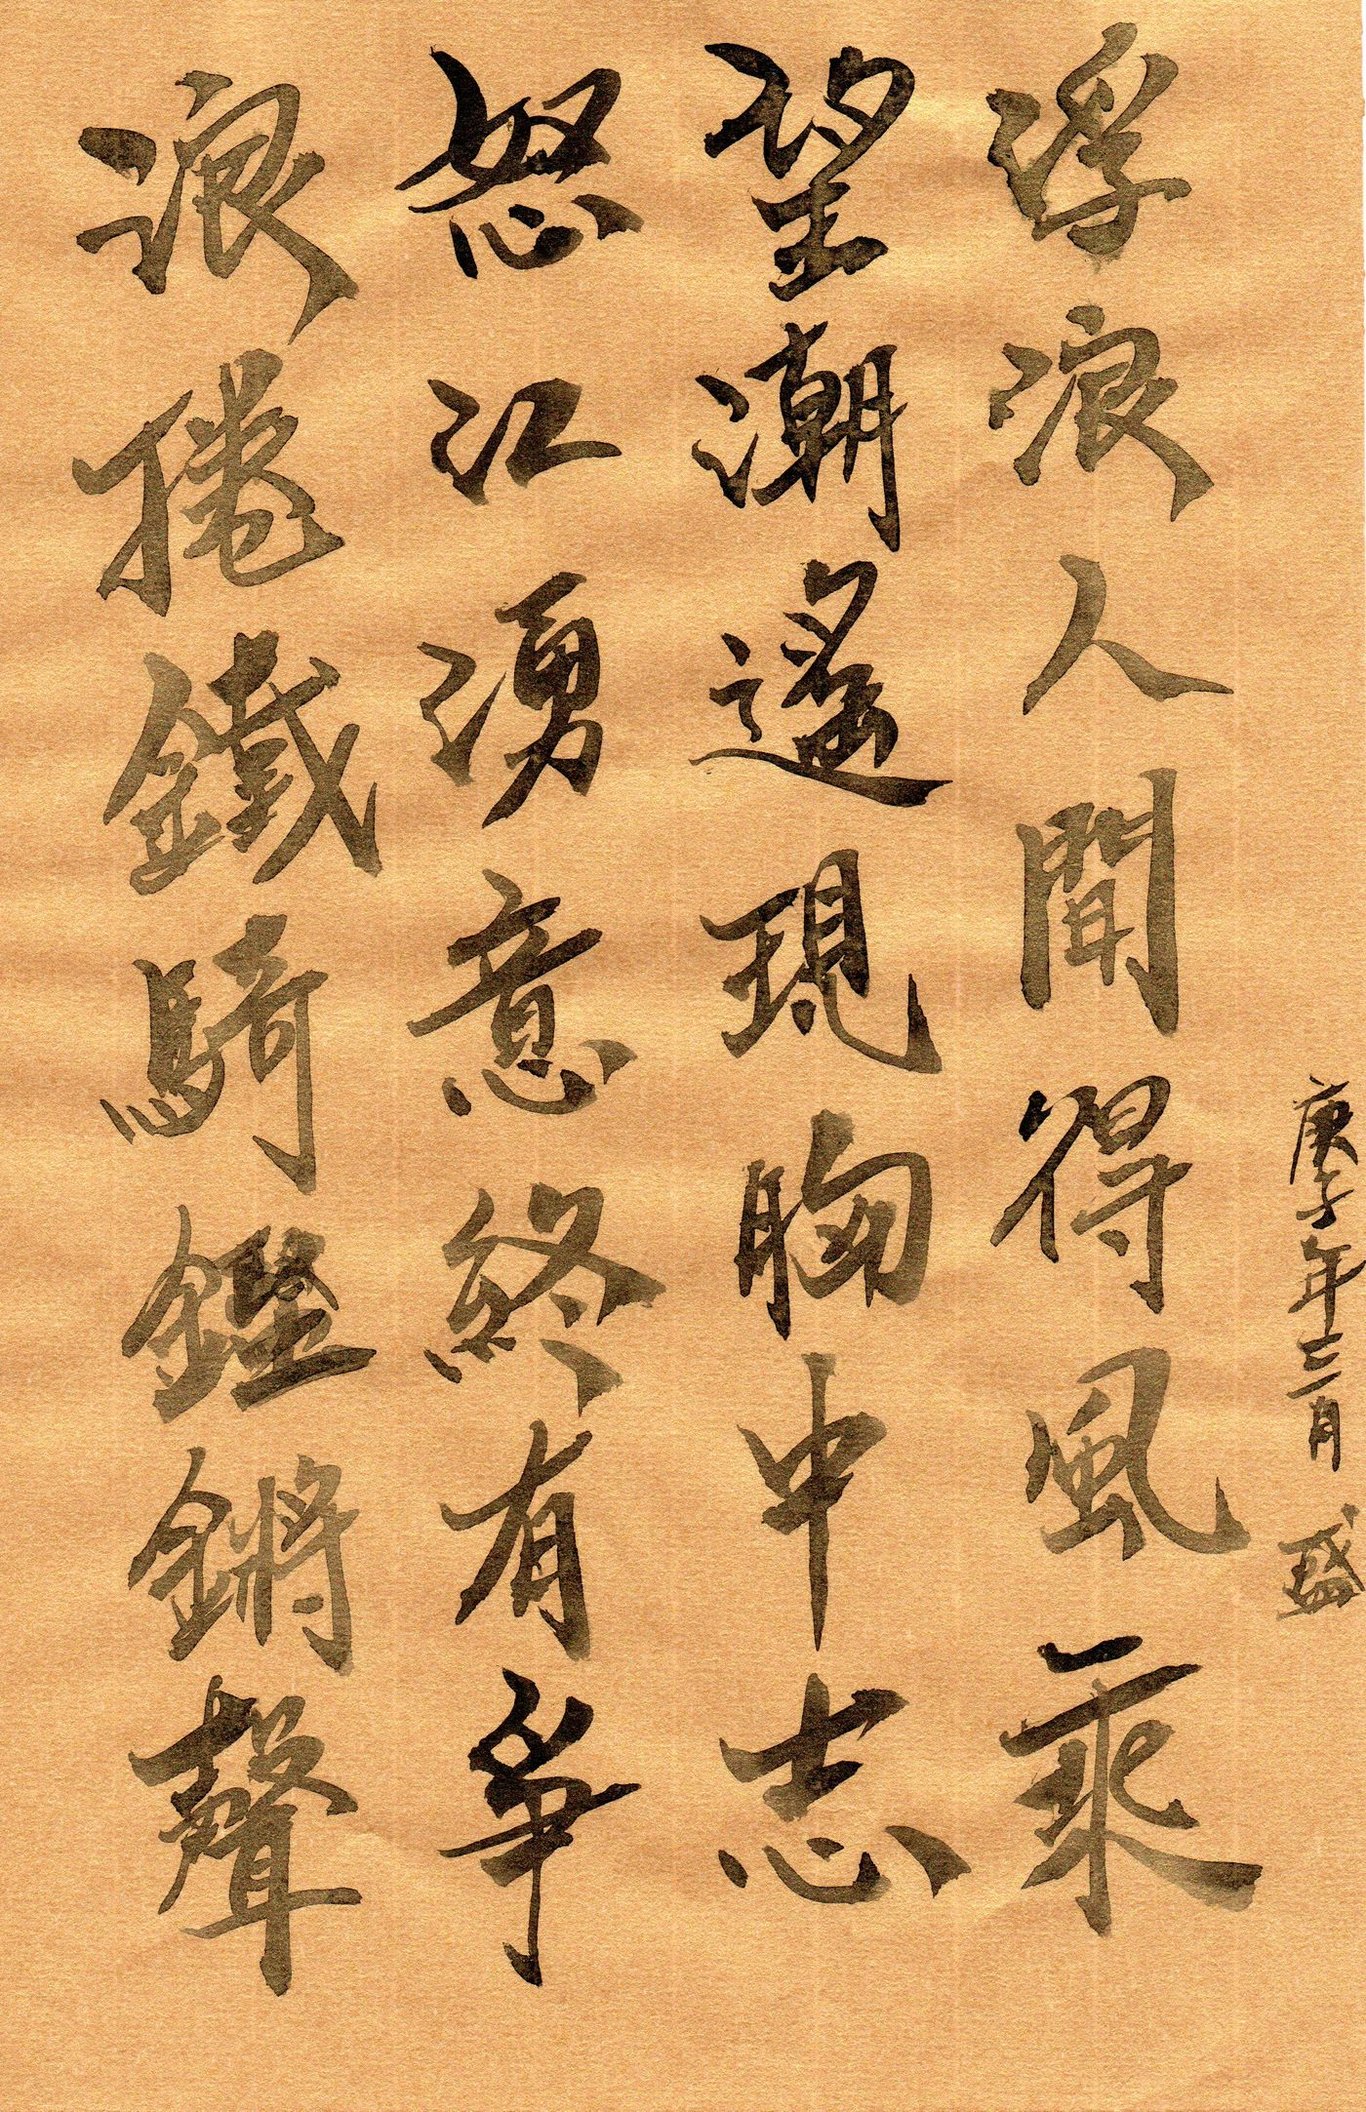 庚子年三月 盛
浮浪人間得風乘
望潮遙現胸中志
怒江湧意終有爭
浪捲鐵騎鏗鏘聲